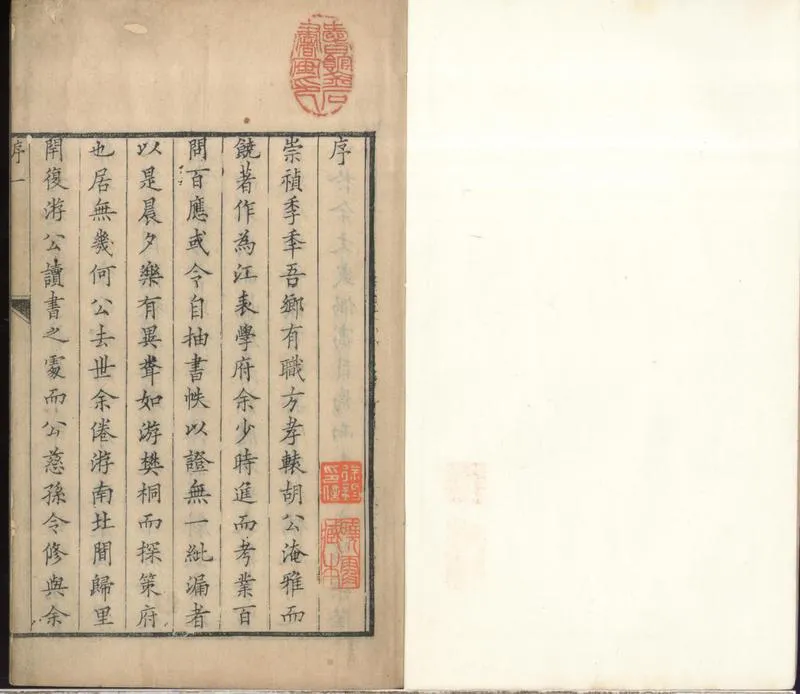 序
崇禎季秊吾鄉有職方孝轅胡公淹雅而
饒著作為江表學府余少時進而考業百
問百應或令自抽書帙以證無一紕漏者
以是晨夕樂有異聾如游樊桐而探策府
也居無幾何公去世余倦游南北間歸里
閈復游公讀書之處而公慈孫令修與余
序一